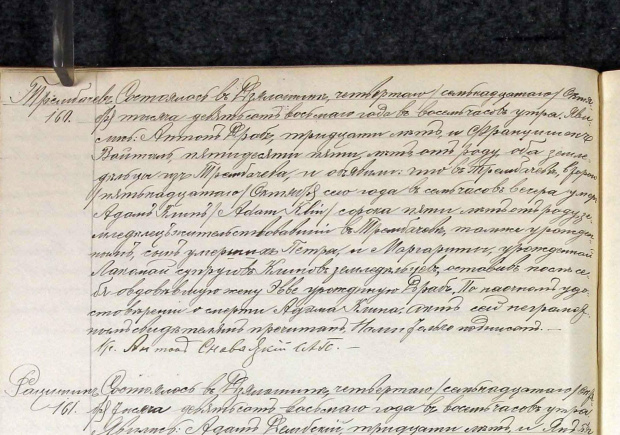 Трембачевъ Состоялось въ четвертаго /семнадцатаго/ Октя
160. бря тысяча девятьсотъ восьмаго года въ восемь часовъ утра. Яви
лись: Антонъ тридцати лѣтъ и Францишекъ
Войтыла пятидесяти пяти лѣтъ отъ роду оба земле
дѣльцы изъ Трембачева, и объявили: что въ Трембачевѣ, втораго
/пятьнадцатаго/ Октября сего года въ семь часовъ вечера умеръ
Адамъ Клинъ /Adam Klin/ сорока пяти лѣтъ отъ роду зе
мледѣлецъ жительствовавшій въ Трембачевѣ, тамже урожден
ный, сынъ умершихъ Петра, и Маргариты, урожденной
супруговъ Клиновъ земледѣльцевъ, оставивъ послѣ се
бя овдовѣвшую жену Эву урожденную По настномъ удо
стовѣреніи о смерти Адама Клина, Актъ сей неграмот
нымъ свидѣтелямъ прочитанъ, Нами только подписанъ. —
Кс. Антонъ —
Состоялось въ четвертаго /семнадцатаго/ Октя
161. бря тысяча девятьсотъ восьмаго года въ восемь часовъ утра
Явились: Адамъ тридцати лѣтъ, и